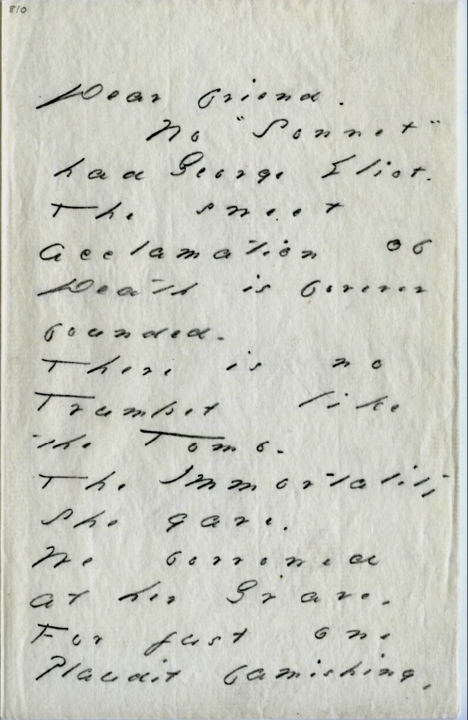 810
Dear friend.
No "Sonnet"
had George Eliot.
The sweet
acclamation of
Death is forever
bounded.
There is no
Trumpet like
the Tomb.
The Immortality
she gave.
We borrowed
at her Grave.
For just one
Plaudit famishing,